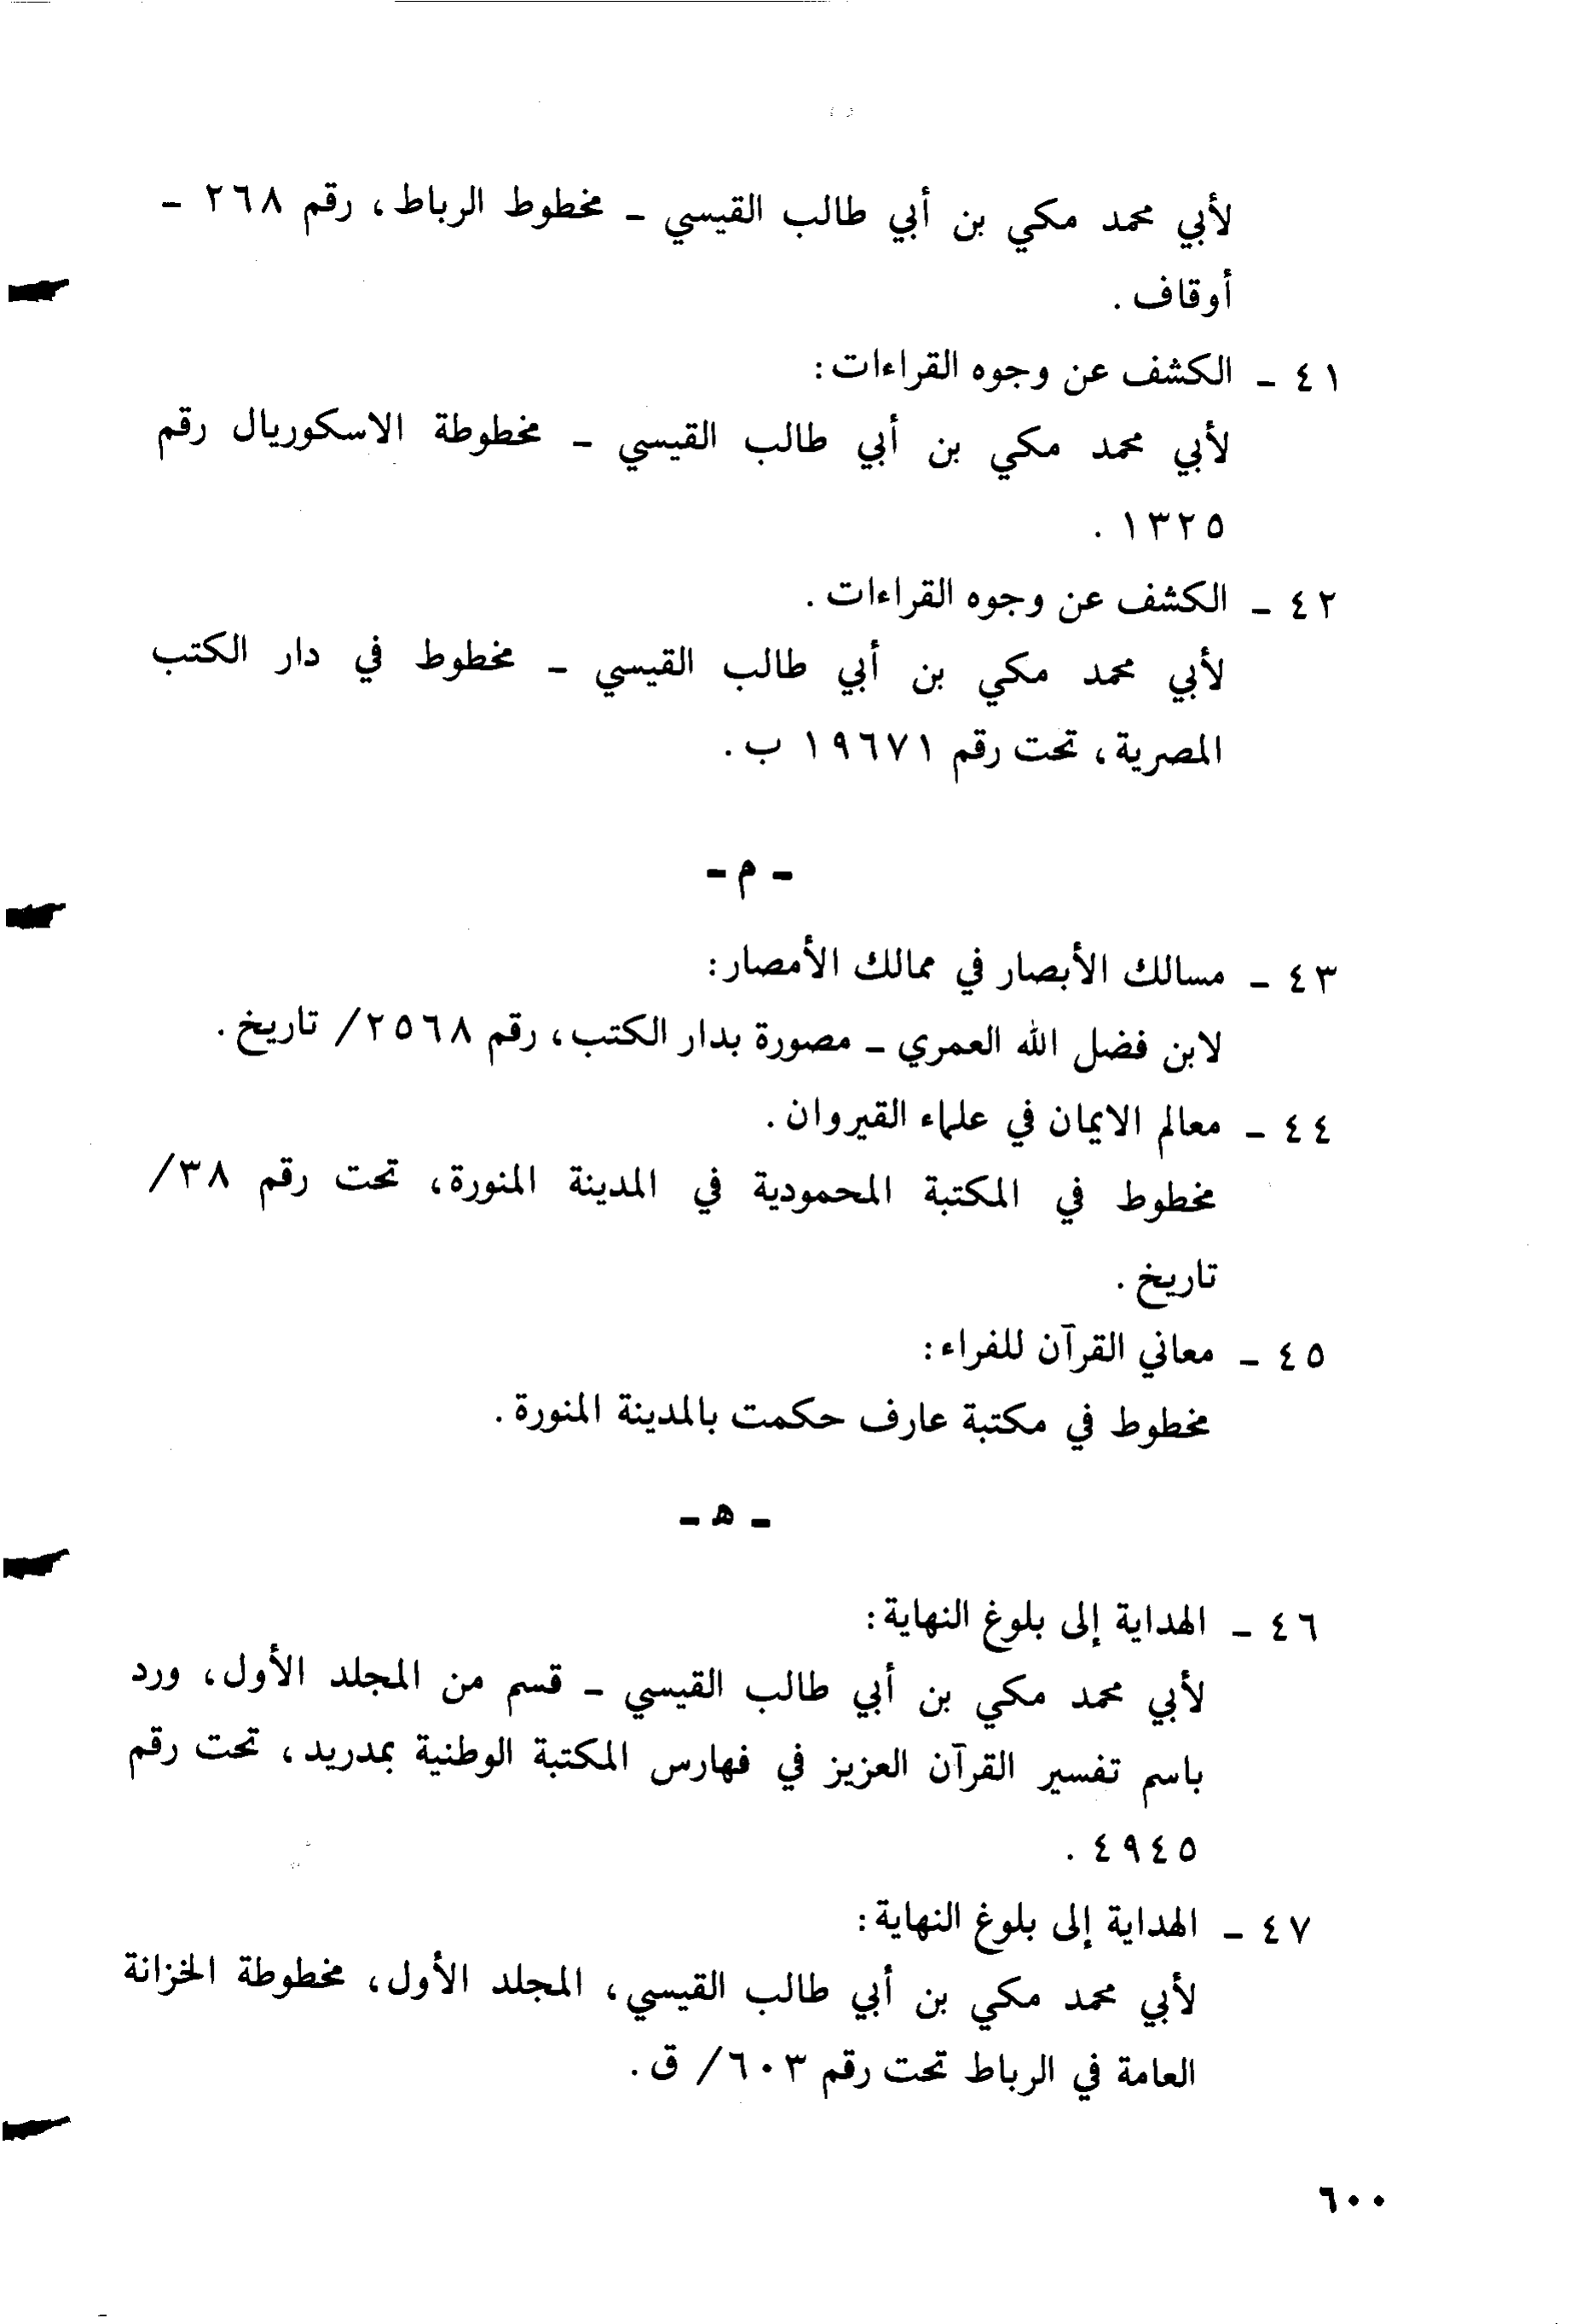 لأبي محمد مكي بن أبي طالب القيسي ـ مخطوط الرباط، رقم ٢٦٨ ـ
أوقاف.
٤١ ـ الكشف عن وجوه القراءات:
لأبي محمد مكي بن أبي طالب القيسي ـ مخطوطة الاسكوريال رقم
١٣٢٥.
٤٢ ـ الكشف عن وجوه القراءات.
لأبي محمد مكي بن أبي طالب القيسي ـ مخطوط في دار الكتب
المصرية، تحت رقم ١٩٦٧١ ب.
ـ م ـ
٤٣ ـ مسالك الأبصار في ممالك الأمصار:
لابن فضل الله العمري ـ مصورة بدار الكتب، رقم ٢٥٦٨/ تاريخ.
٤٤ ـ معالم الايمان في علماء القيروان.
مخطوط في المكتبة المحمودية في المدينة المنورة، تحت رقم ٣٨/
تاريخ.
٤٥ ـ معاني القرآن للفراء:
مخطوط في مكتبة عارف حكمت بالمدينة المنورة.
ـ هـ ـ
٤٦ ـ الهداية إلى بلوغ النهاية:
لأبي محمد مكي بن أبي طالب القيسي ـ قسم من المجلد الأول، ورد
باسم تفسير القرآن العزيز في فهارس المكتبة الوطنية بمدريد، تحت رقم
٤٩٤٥.
٤٧ ـ الهداية إلى بلوغ النهاية:
لأبي محمد مكي بن أبي طالب القيسي، المجلد الأول، مخطوطة الخزانة
العامة في الرباط تحت رقم ٦٠٣/ ق.
٦٠٠